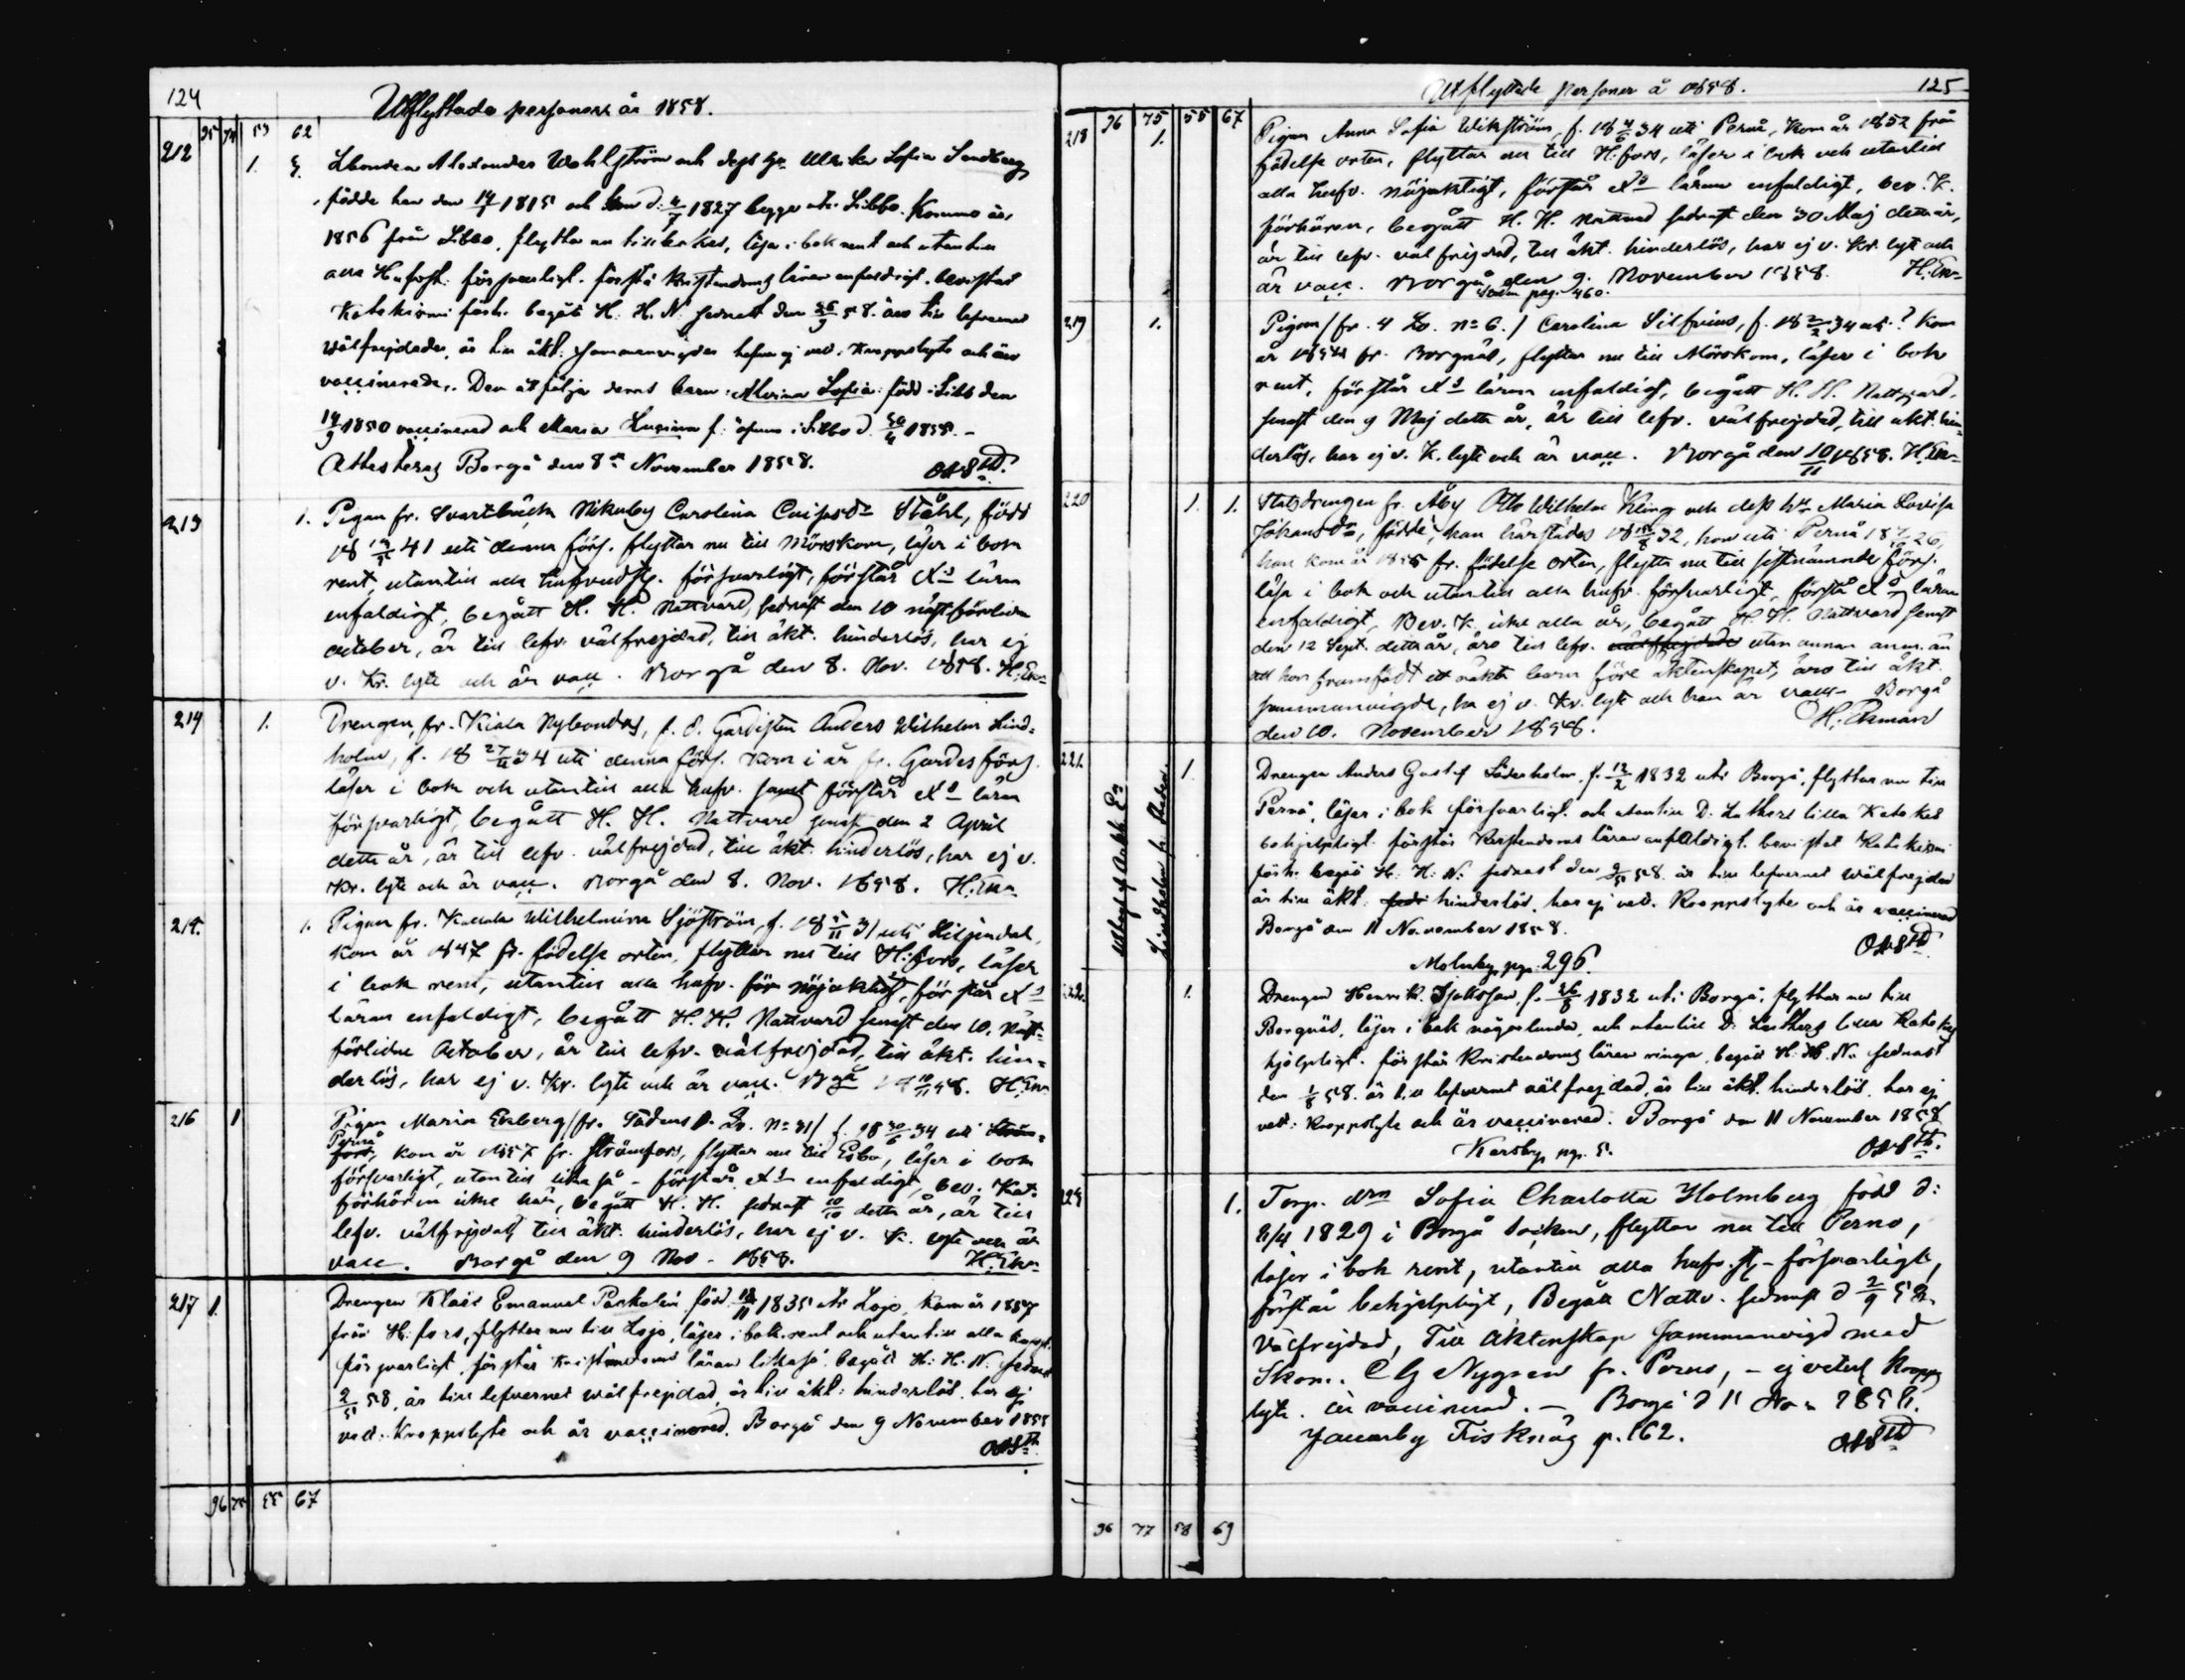 124
Utflyttade personer år 1858.
95 74 53 62
212 1. 3. Lbonden Alexander Wahlström och dess h:u Ulrika Sofia Sandberg
födde han den 14/7 1815 och hon d. 4/7 1827 begge uti Sibbo. Kommo år
1856 från Sibbo, flytta nu tillbakas, läsa i bok rent och utantill
alla Hufvst. försvarligt. förstå Kristendoms läran enfaldigt. bevistat
Katekismi förh. begått H. H. N. sednast den 26/9 58. äro till lefvernet
wälfrejdade, är till äkt. sammanvigda hafva ej vet. Kroppslyte och äro
vaccinerade. Den åtfölja deras barn: Alvina Sofia: född i Sibbo den
14/9 1850 vaccinerad och Maria Lusina f. äfven i Sibbo d. 30/4 1855. –
Attesteras Borgå den 8de November 1858.
213 1. Pigan fr. Svartbäck Nikuby Carolina Caisasdr Ståhl, född
18 /5 41 uti denna förs. flyttar nu till Mörskom, läser i bok
rent, utantill alla hufvudst. försvarligt, förstår Xs läran
enfaldigt, begått H. H. Nattvard, sednast den 10 nästförliden
october, är till lefv. välfrejdad, till äkt. hinderlös, har ej
v. Kr. lyte och är vacc. Borgå den 8. Nov. 1858. H. Ekn
214 1. Drengen, fr. Kiala Nybondas, f. d. Gardisten Anders Wilhelm Lind=
holm, f. 18 27/11 34 uti denna förs. kom i år fr. Gardes förs.
läser i bok och utantill alla hufv. samt förstår Xs läran
försvarligt, begått H. H. Nattvard senast den 2 April
detta år, är till lefv. välfrejdad, till äkt. hinderlös, har ej v.
Kr. lyte och är vacc. Borgå den 8. Nov. 1858. H. Ekn
215. 1. Pigan fr. Wilhelmina Sjöström, f. 18 5/11 31 uti Liljendal,
kom år 1847 fr. födelse orten, flyttar nu till H:fors, läser
i bok rent, utantill alla hufv. för nöjaktigt, förstår Xs
läran enfaldigt, begått H. H. Nattvard senast den 10. näst=
förlidne October, är till lefv. välfrejdad, till äkt. hin=
derlös, har ej v. Kr. lyte och är vacc. Bgå 18 10/11 58. H. Ekn
216 1 Pigan Maria Ekberg / fr. Södens n:o 31 / f. 18 30/6 34 uti
Pernå kom år 1857 fr. Strömfors, flyttar nu till Esbo, läser i bok
försvarligt, utantill lika så – förstår Xs enfaldigt, bev. Kat.
förhören icke här, begått H. H. sednast 10/10 detta år, är till
lefv. välfrejdad, till äkt. hinderlös, har ej v. K. lyte och är
vacc. Borgå den 9 Nov. 1858. H. Ekn
217 1. Drengen Klaes Emanuel född 1835 uti Lojo, kom år 1857
från H:fors, flyttar nu till Lojo, läser i bok rent och utantill alla hufvst.
försvarligt, förstår Kristendoms läran likaså. begått H: H: N. sednast
2/5 58, är till lefvernet wälfrejdad, är till äkt: hinderlös, har ej
vet: Kroppslyte och är vaccinerad. Borgå den 9 November 1858
96 75 55 67
Utflyttade personer å 1858. 125
96 75 55 67
218 1. Pigan Anna Sofia Wikström, f. 18 34 uti Pernå, kom år 1852 från
födelse orten, flyttar nu till H:fors, läser i bok och utantill
alla hufv. nöjaktigt, förstår Xs läran enfaldigt, bev. K.
förhören, begått H. H. Nattvard sednast den 30 Maj detta år,
är till lefv. välfrejdad, till äkt. hinderlös, har ej v. Kr. lyte och
är vacc. Borgå den 9. November 1858. H. Ekn
pag. 460.
219 1. Pigan / fr. 4 n:o 6. / Carolina Silfvius, f. 18 34 uti ? kom
år 1854 fr. Borgnäs, flyttar nu till Mörskom, läser i bok
rent, förstår Xs läran enfaldigt, begått H. H. Nattvard
senast den 9 Maj detta år, är till lefv. välfrejdad, till äkt. hin=
derlös, har ej v. K. lyte och är vacc. Borgå den 10/11 1858. H. Ekn
220 1. 1. Statsdrengen fr. Åby Otto Wilhelm Kling och dess h:u Maria Lovisa
Johansdr, födde, han härstädes 18 32, hon uti Pernå 18 26,
hon kom år 1855 fr. födelse orten, flytta nu till sistnämnde förs.
läsa i bok och utantill alla hufv. försvarligt, förstå Xs läran
enfaldigt, Bev. K. icke alla år, begått H. H. Nattvard senast
den 12 Sept. detta år, äro till lefv. välfrejdade utan annan anm. än
att hon framfödt ett oäkta barn före äktenskapet, äro till äkt.
sammanvigde, ha ej v. Kr. lyte och han är vacc. Borgå
den 10. November 1858. H. Ekman
221. 1. Drengen Anders Gustaf Söderholm, f. 12/2 1832 uti Borgå, flyttar nu till
Pernå, läser i bok försvarligt och utantill D. Luthers lilla Kateket
behjelpligt. förstår Kristendoms läran enfaldigt. bevistat Katekismi
förh. begått H: H: N. sednast den 2/5 58. är till lefvernet wälfrejdad
är till äkt: hinderlös, har ej vet. Kroppslyte och är vaccinerad
Borgå den 11 November 1858.
Molnby pag. 296.
Lindholm
222. 1. Drengen Henrik f. 26/8 1832 uti Borgå, flyttar nu till
Borgnäs, läser i bok någorlunda, och utantill D: Luthers lilla Kateket
hjelpligt. förstår Kristendoms läran ringa, begått H: H. N. sednast
den 1/8 58. är till lefvernet wälfrejdad, är till äkt. hinderlös, har ej
vet: Kroppslyte och är vaccinerad. Borgå den 11 November 1858
Karsby pag. 5.
1. Torp. drn Sofia Charlotta Holmberg född d:
2/4 1829 i Borgå socken, flyttar nu till Perno,
läser i bok rent, utantill alla hufv. st. – försvarligt,
förstår behjelpligt, Begått Nattv. sednast d 2/9 58.
välfrejdad, Till äktenskap sammanvigd med
Skom. C G Nygren fr. Perno, – ej veterl. Kropps
lyte. är vaccinerad. – Borgå d 11 Nov. 1858.
Jackarby Fisknäs p. 162.
96 77 58 69